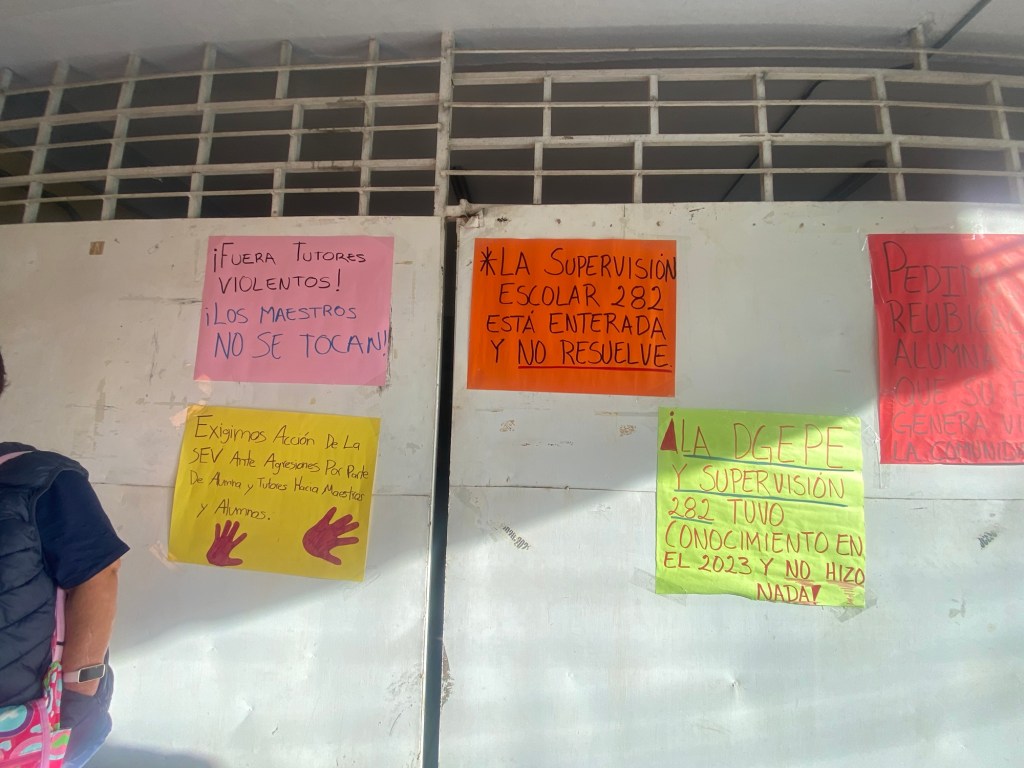 ¡FUERA TUTORES
VIOLENTOS!
¡LOS MAESTROS
NO SE TOCAN!!
Exigimos Acción De La
SEV Ante Agresiones Por Parte
De Alumna y Tutores Hacia Maestras
y Alumnos.
*LA SUPERVISIÓN
ESCOLAR 282
ESTÁ ENTERADA
Y NO RESUELVE.
¡LA DGEPE
Y SUPERVISIÓN
282 TUVO
CONOCIMIENTO EN
EL 2023 Y NO HIZO
NADA!
ALUMNA
QUE SU
GENERA
LA